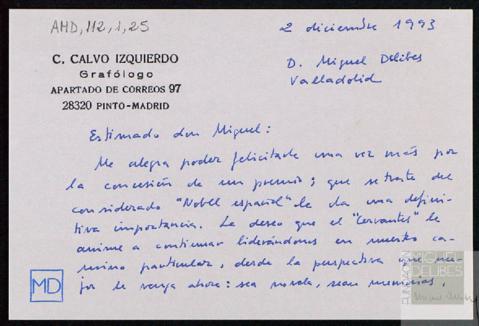 AMD, 112, 1, 25
2 diciembre 1993
C. CALVO IZQUIERDO
Grafólogo
APARTADO DE CORREOS 97
28320 PINTO-MADRID
D. Miguel Delibes
Valladolid
Estimado don Miguel:
Me alegra poder felicitarle una vez más por
la concesión de un premio; que se trate del
considerado "Nobel español" le da una defini-
tiva importancia. Le deseo que el "Cervantes" le
anime a continuar liderándonos en nuestro ca-
mino particular, desde la perspectiva que me-
jor le venga ahora: sea novela, sean memorias,
MD
FUNDACIÓN
MIGUEL
DELIBES